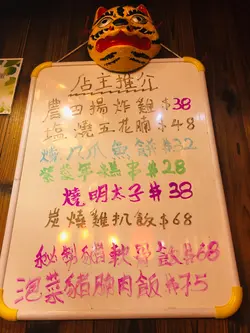 店主推介
農田揚炸雞 $38
鹽燒五花腩 $48
燒八爪魚餅 $32
紫菜年糕串 $28
燒明太子 $38
炭燒雞扒飯 $68
秘制豬軟骨飯 $68
泡菜豬腩肉飯 $75